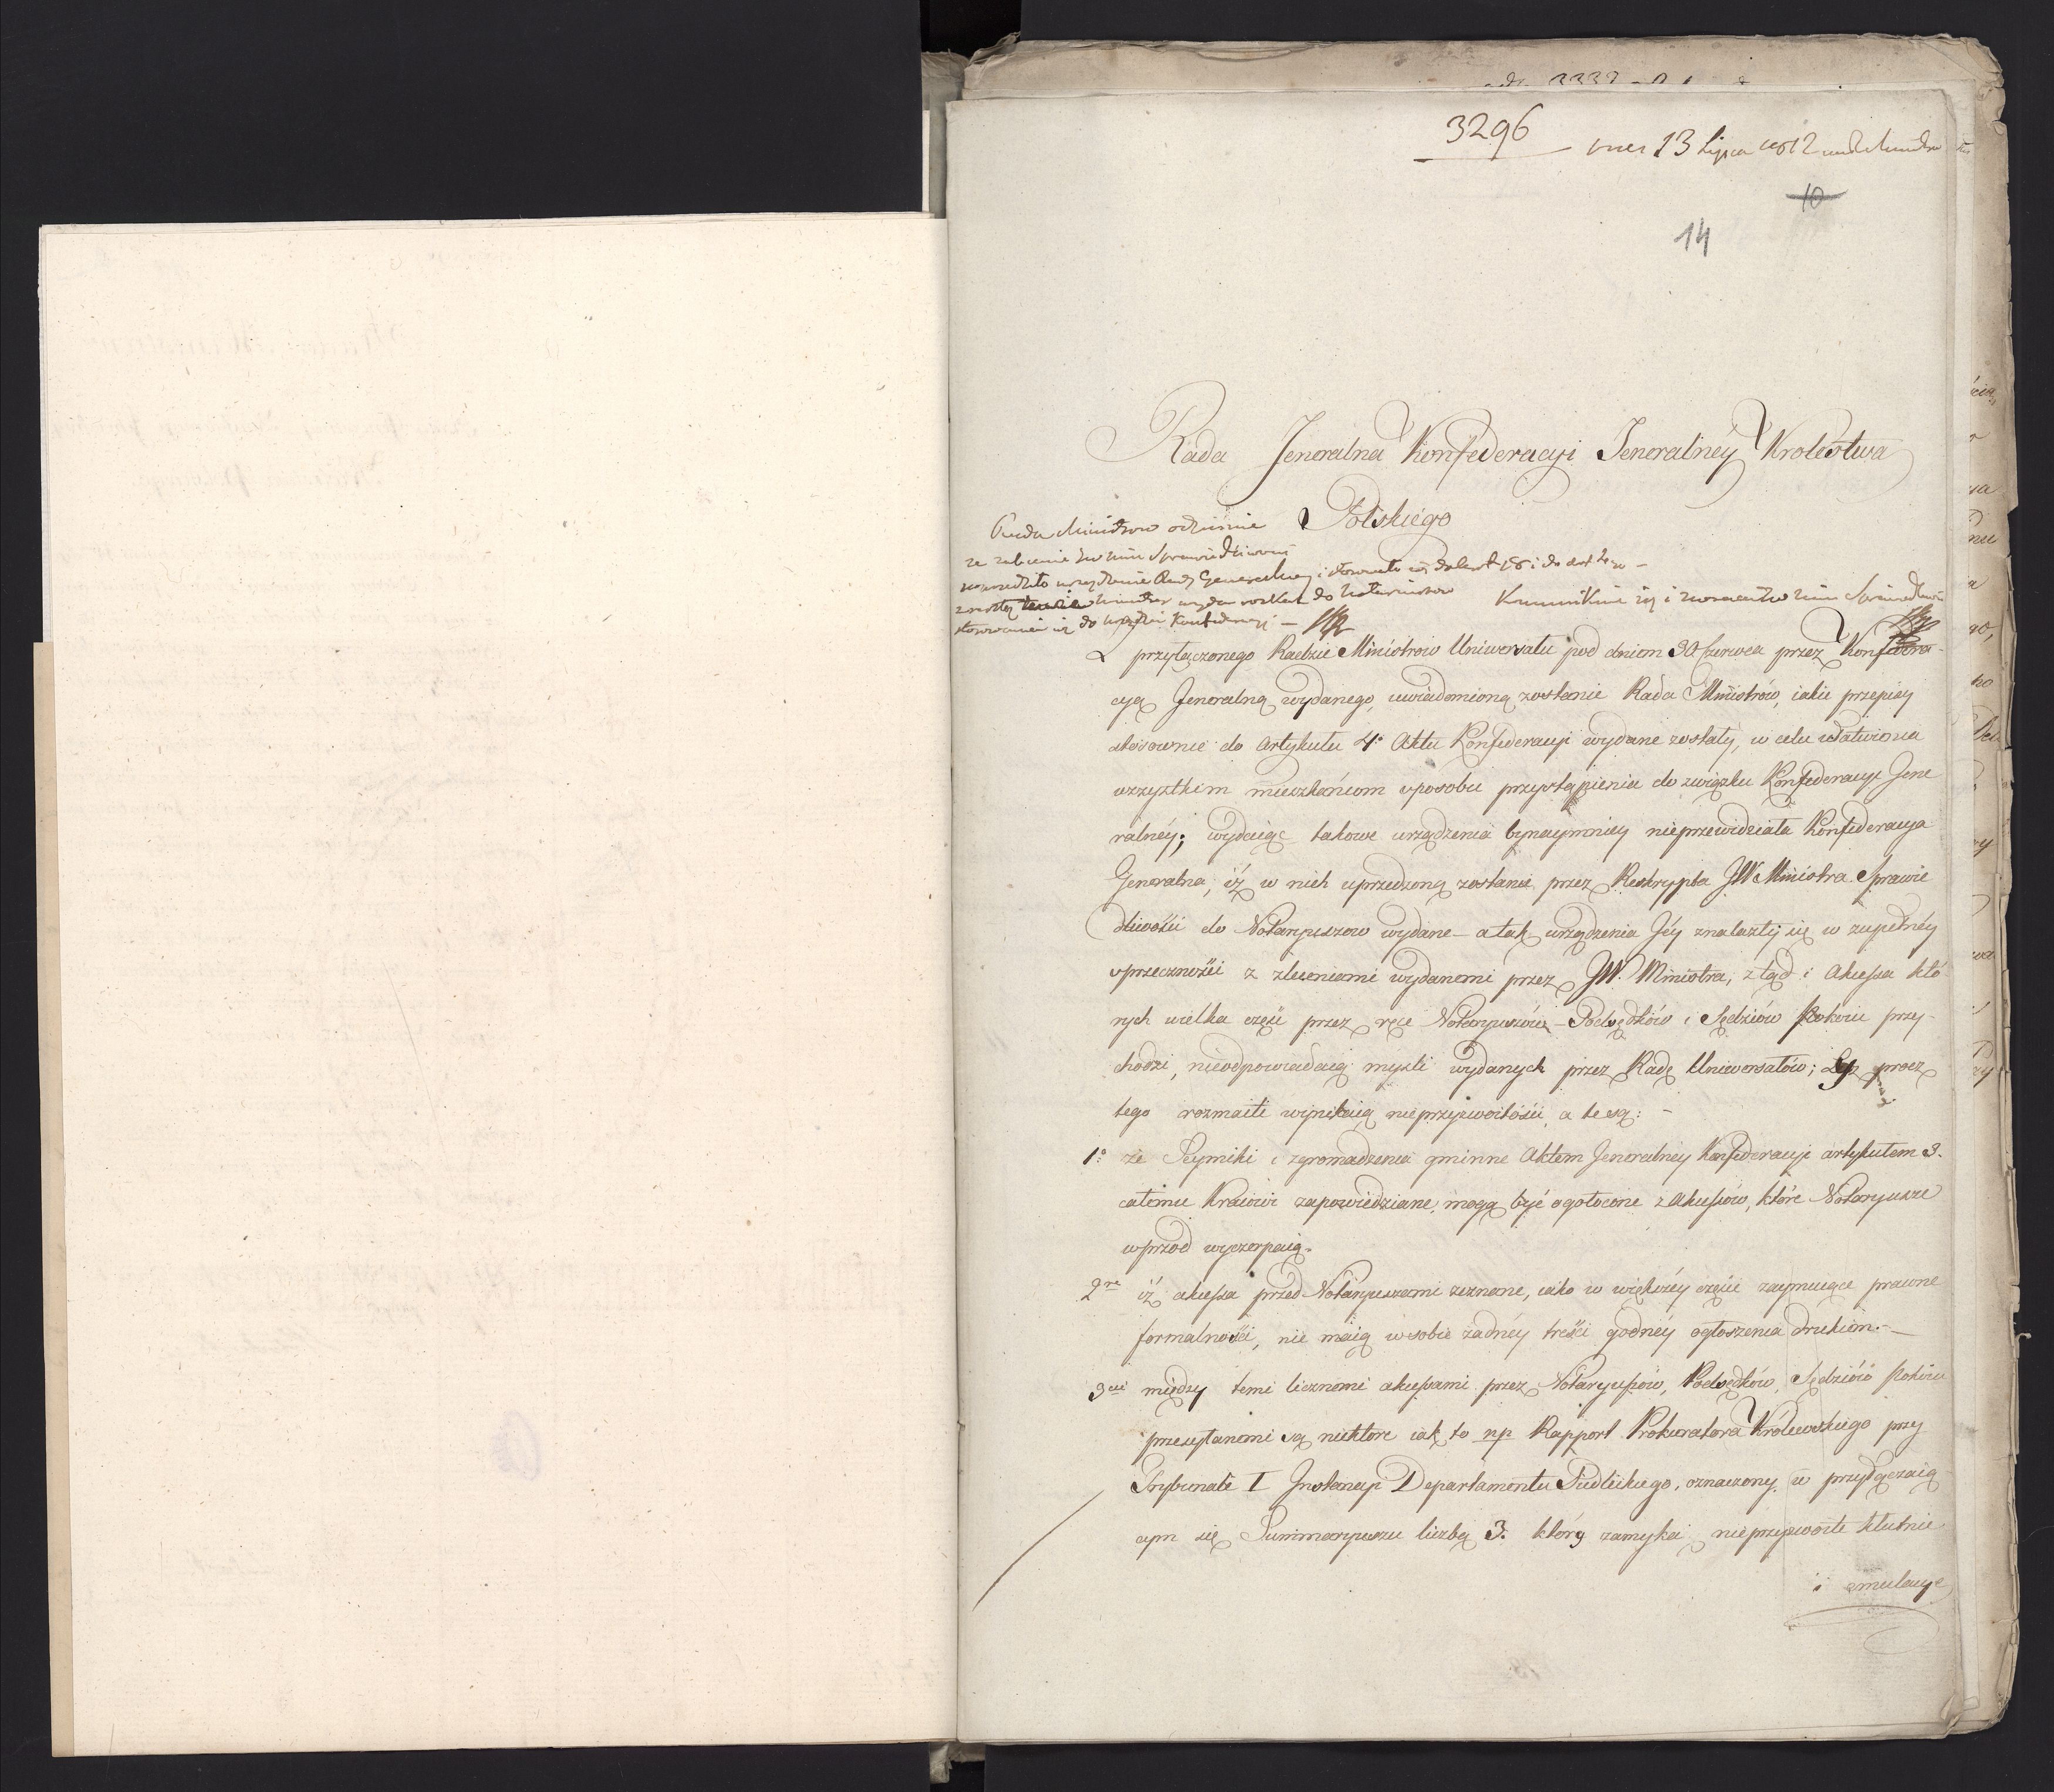 3296
13 Lipca 1812
10
14
Rada Jeneralna Konfederacyi Jeneralnéy Krolestwa
Polskiego
Rada Ministrow odpisuie
że zalecenie Sprawiedliwości
urządzenie Rady Generalney i
Minister wyda rozkaz do Notariuszow
stosowania się do urządzeń Konfederacyi —
Z przyłączonego Radzie Ministrów Uniwersału pod dniem 30 Czerwca przez Konfedera-
cyą Jeneralną wydanego, uwiadomioną zostanie Rada Ministrów, iakie przepisy
stosownie do Artykułu 4° Aktu Konfederacyi wydane zostały, w celu ułatwienia
wszystkim mieszkańcom sposobu przystąpienia do związku Konfederacyi Jene
ralnéy; wydaiąc takowe urządzenia bynaymniey nieprzewidziała Konfederacya
Generalna, iż w nich uprzedzoną zostanie przez Reskrypta JW Ministra Sprawie
dliwości do Notaryuszow wydane – a tak urządzenia Jéy znalazły się w zupełnéy
sprzeczności z zleceniami wydanemi przez JW. Ministra, ztąd i Akcessa któ
rych wielka część przez ręce Notaryuszów – Podsędków i Sędziów Pokoiu przy-
chodzi, nieodpowiadaią myśli wydanych przez Radę Uniwersałów; procz
tego rozmaite wynikaią nieprzyzwoitości, a te są: –
1° że Seymiki i zgromadzenia gminne Aktem Jeneralney Konfederacyi artykułem 3.
całemu Kraiowi zapowiedziane, mogą być ogołocone z Akcessów, które Notaryusze
wprzod wyczerpaią.
2re iż akcessa przed Notaryuszami zeznane, iako w większéy części zaymuiące prawne
formalności, nie maią w sobie żadnéy treści godnéy ogłoszenia drukiem. —
3cie między temi licznemi akcessami przez Notaryuszów, Podsędków, Sędziów Pokoiu
przesyłanemi są niektóre iak to np Rapport Prokuratora Królewskiego przy
Trybunale I Instancyi Departamentu Siedleckiego, oznaczony w przyłączaią
cym się Summaryuszu liczbą 3. który zamyka nieprzyzwoite kłutnie
i emulacye